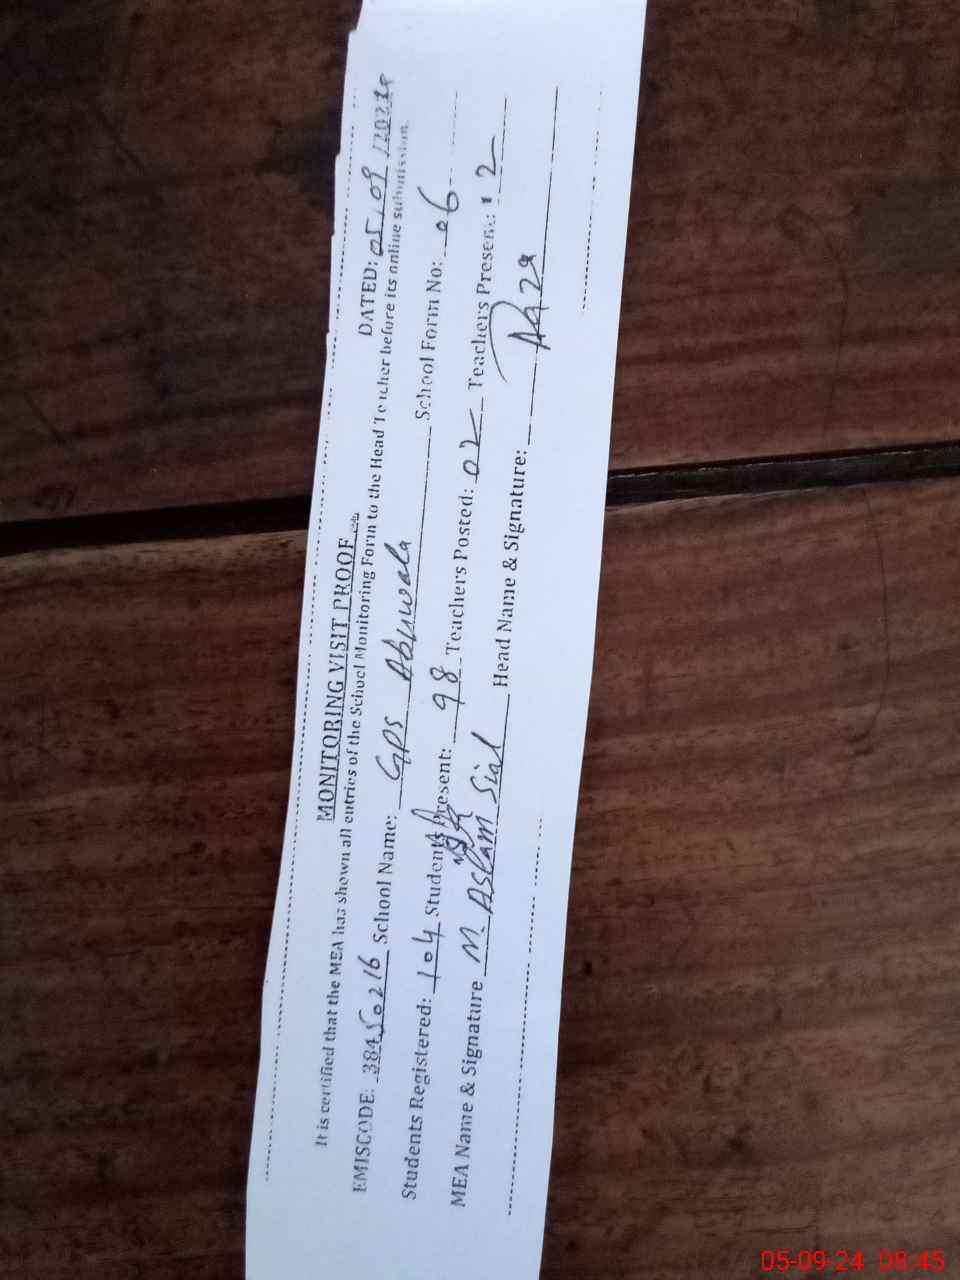 MONITORING VISIT PROOF
DATED: 05/09/2024
It is certified that the MEA has shown all entries of the School Monitoring Form to the Head Teacher before its online submission.
EMISCODE: 38450216 School Name: GPS Abuwala School Form No: 06
Students Registered: 104 Students Present: 98 Teachers Posted: 02 Teachers Present: 2
MEA Name & Signature M. Aslam Sial Head Name & Signature:
05-09-24 08:45